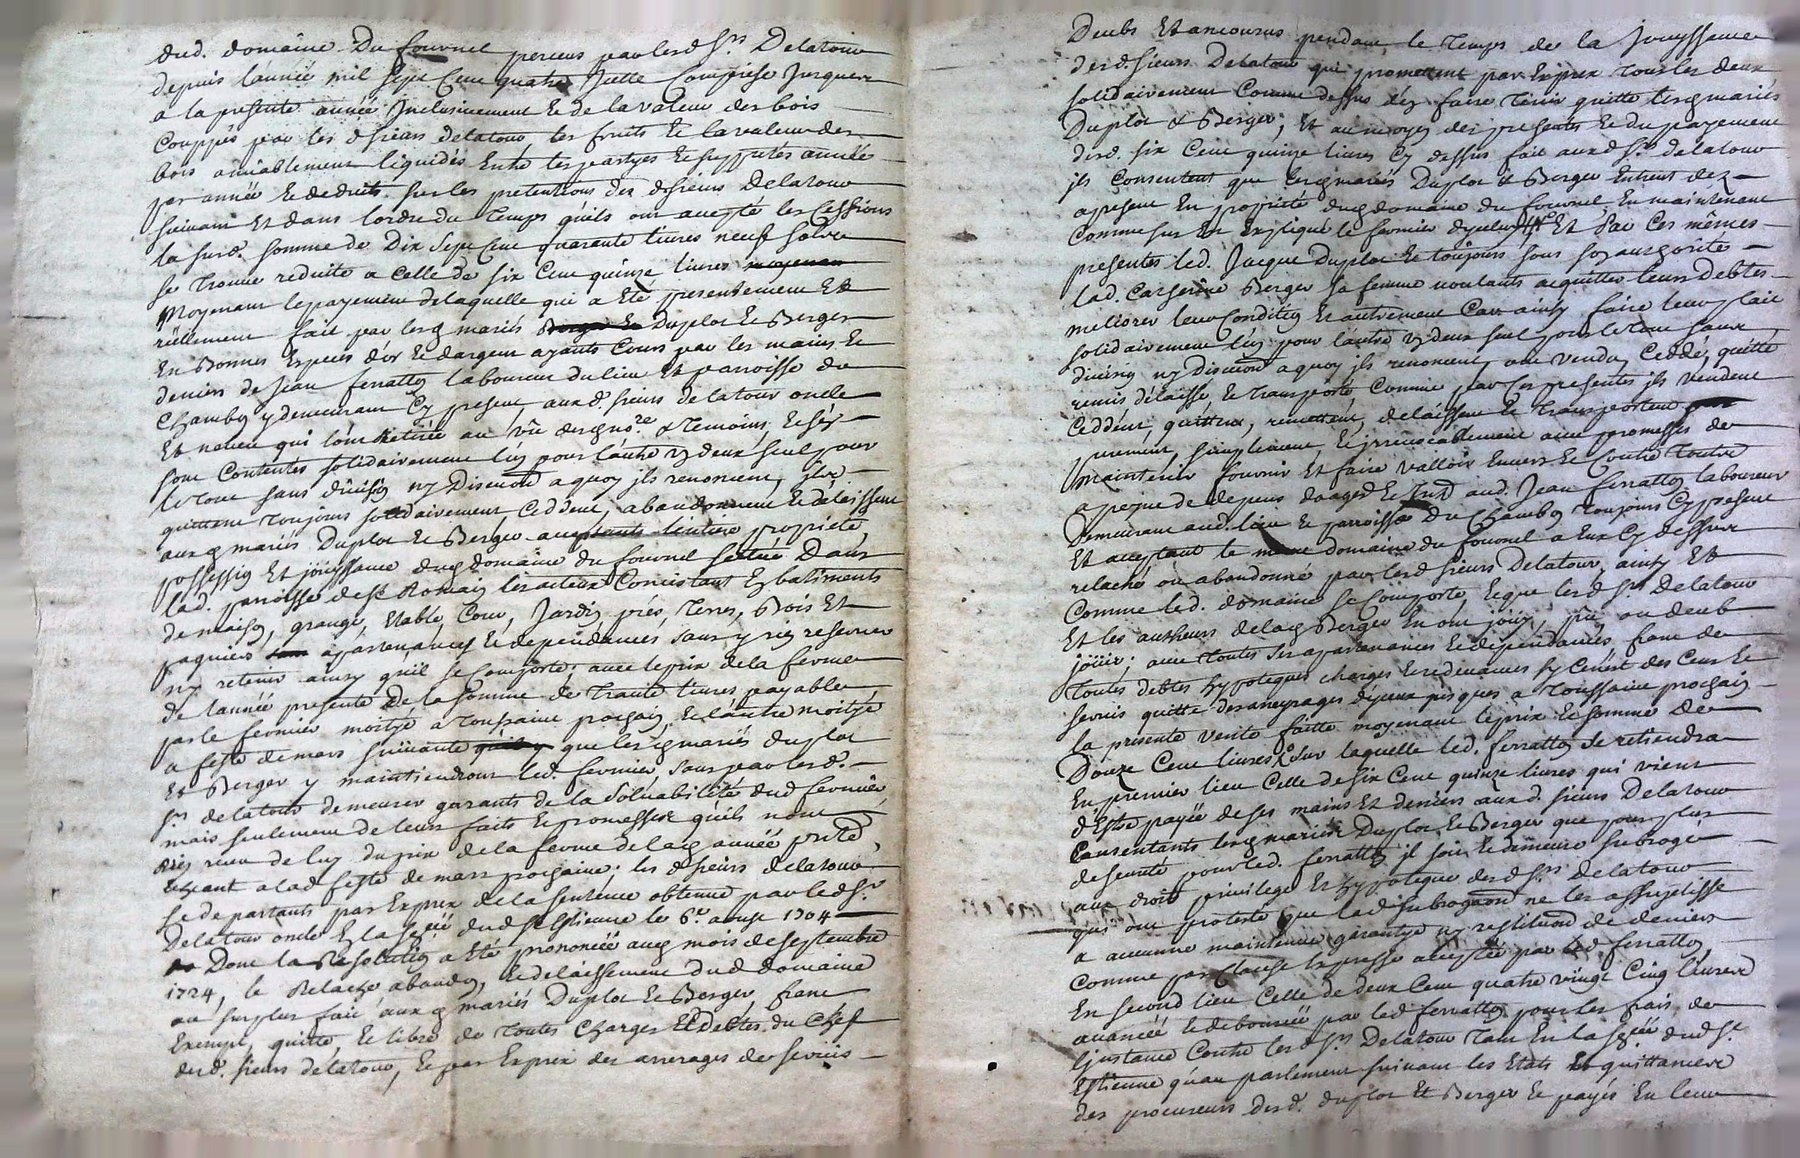 dud. domaine Du fournel perceus par lesd Srs Delatour
depuis lannée mil sept Cent quatre Jcelle Comprise Jusques
a la presente année Inclusivement Et de la valeur des bois
Couppés par les d sieurs delatour les fruits Et la valeur des
bois amiablement liquidés Entre les partyes Et suppputés année
par année Et dedruits sur les pretentions des d sieurs Delatour
suivant Et dans lordre du Temps quils ont accepté les Cessions
la surd. somme de Dix Sept Cent quarente livres neuf sols
se Trouve reduite a Celle de six Cent quinze livres moyenan
Moyenant le payement delaquelle qui a Eté presentement Et
rëellement fait par lesq mariés Berger Et Duplot Et Berger
En Bonnes Especes d'or Et dargent ayants Cours par les mains Et
deniers de Jean ferratton laboureur du lieu Et parroisse de
Chambon y demeurant Cy present auxd. sieurs de latour oncle
Et neveu qui lont Retirée au vû desq nore & Temoins, Et s'en
sont Contentés solidairement lun pour lautre Un deux seul pour
le Tout sans division ny Discution a quoy jls renoncent, jls
quittent Toujours solidairement Ceddent, abandonnent Et delaissent
aux q mariés Duplot Et Berger propriété
possession Et joüissance dudq domaine du fournel scittué Dans
lad. parroisse de st Romain les atteux Concistant En batiments
de maison, grange, Etable, Cour, Jardin, prés, Terres, Bois Et
paquiers apartenances Et dependances, sans y rien reserver
ny retenir ainsy quil se Comporte, avec le prix de la ferme
de lannée presente De la somme de Trante livres payable
par le fermier moityé a Toussaint prochain, Et lautre moityé
a feste de mars suivante que lesq mariés duplot
Et Berger y maintiendront led. fermier, sans que lesd.
Srs delatour demeurer garants de la solvabilité dud fermier
mais seulement de leurs faits Et promesses quils nont
rien receu de luy du prix de la ferme de laq année
Echeant a lad feste de mars prochaine. les d sieurs delatour
se departants par Exprex de la sentence obtenue par led Sr.
Delatour oncle En la sentée dud st Estienne le 6e aoust 1704
Dont la Resolution a Eté prononcée auq mois de septembre
1724, le Relache abandon, Et delaissement dud domaine
au surplus fait aux q mariés Duplot Et Berger, franc
Exempt, quitte, Et libre de Toutes Charges Et Debtes du Chef
desd. sieurs delatour, Et par Exprex des arrerages de servis
Deubs Et encourus pendant le Temps de la Jouyssance
desd. sieurs Delatour qui promettent par Exprex Tous les deux
solidairement Comme dessus d'en faire Tenir quitte lesq mariés
Duplot & Berger; Et au moyen des presentes Et du payement
desd. six Cent quinze livres Cy dessus fait auxd Srs delatour
jls Consentent que lesq mariés Duplot & Berger Entrent dez
apresent En propriété dudq domaine du fournel, En maintenant
Comme sus Est Expliqué le fermier dyceluy Et Par Ces mêmes
presentes led. Jacque Duplot Et toujours sous son authorité
lad. Catherine Berger sa femme voulants acquitter leurs Debtes
meliorer leur Condition Et autrement Car ainsy faire leur plait
solidairement lun pour lautre Un deux seul pour le Tout sans
division ny Discution a quoy jls renoncent, ont vendu, Ceddé, quitté
remis délaissé, Et Transporté Comme par les presentes jls vendent
Ceddent, quittent, remettent, delaissent Et Transportent
purement, simplement, Et jrrevocablement avec promesses de
maintenir fournir Et faire valloir Envers Et Contre Toutes
a peine de depens domages Et Int aud. Jean ferratton laboureur
Demeurant aud. lieu Et parroisse Du Chambon Toujours Cy present
Et acceptant le même domaine du fournel a Eux Cy dessus
relaché ou abandonné par lesd sieurs Delatour, ainsy Et
Comme led. domaine se Comporte, Et que lesd Srs Delatour
Et les autheurs delaq Berger En ont jouy, pû, ou deub
joüir; avec toutes ses apartenances Et dependances franc de
Toutes debtes hypoteques charges Et redevances sy Cenest des Cens Et
servis quitte des arreyrages d'yceux jusques a Toussaint prochain
la presente vente faitte moyenant le prix Et somme de
Douze Cent livres sur laquelle led. ferratton se retiendra
En premier lieu Celle de six Cent quinze livres qui vient
d'Estre payée de ses mains Et deniers auxd. sieurs Delatour
Consentants lesq mariés Duplot Et Berger que pour plus
de seureté pour led. ferratton jl soit Et demeure subrogé
aux droit privilege Et hypoteque desd Srs delatour
qui ont protesté que lad subrogaon ne les assujetisse
a aucune maintenue garantye ny restituon de deniers
Comme par Clause Expresse acceptée par led ferratton,
En second lieu Celle de deux Cent quatre vingt Cinq livres
avancée Et deboursée par led ferratton pour les frais de
linstance Contre lesd Srs Delatour Tant En la sentée dud st.
Estienne qu'au parlement suivant les Etats Et quittances
des procureurs desd. duplot Et Berger Et payés En leur